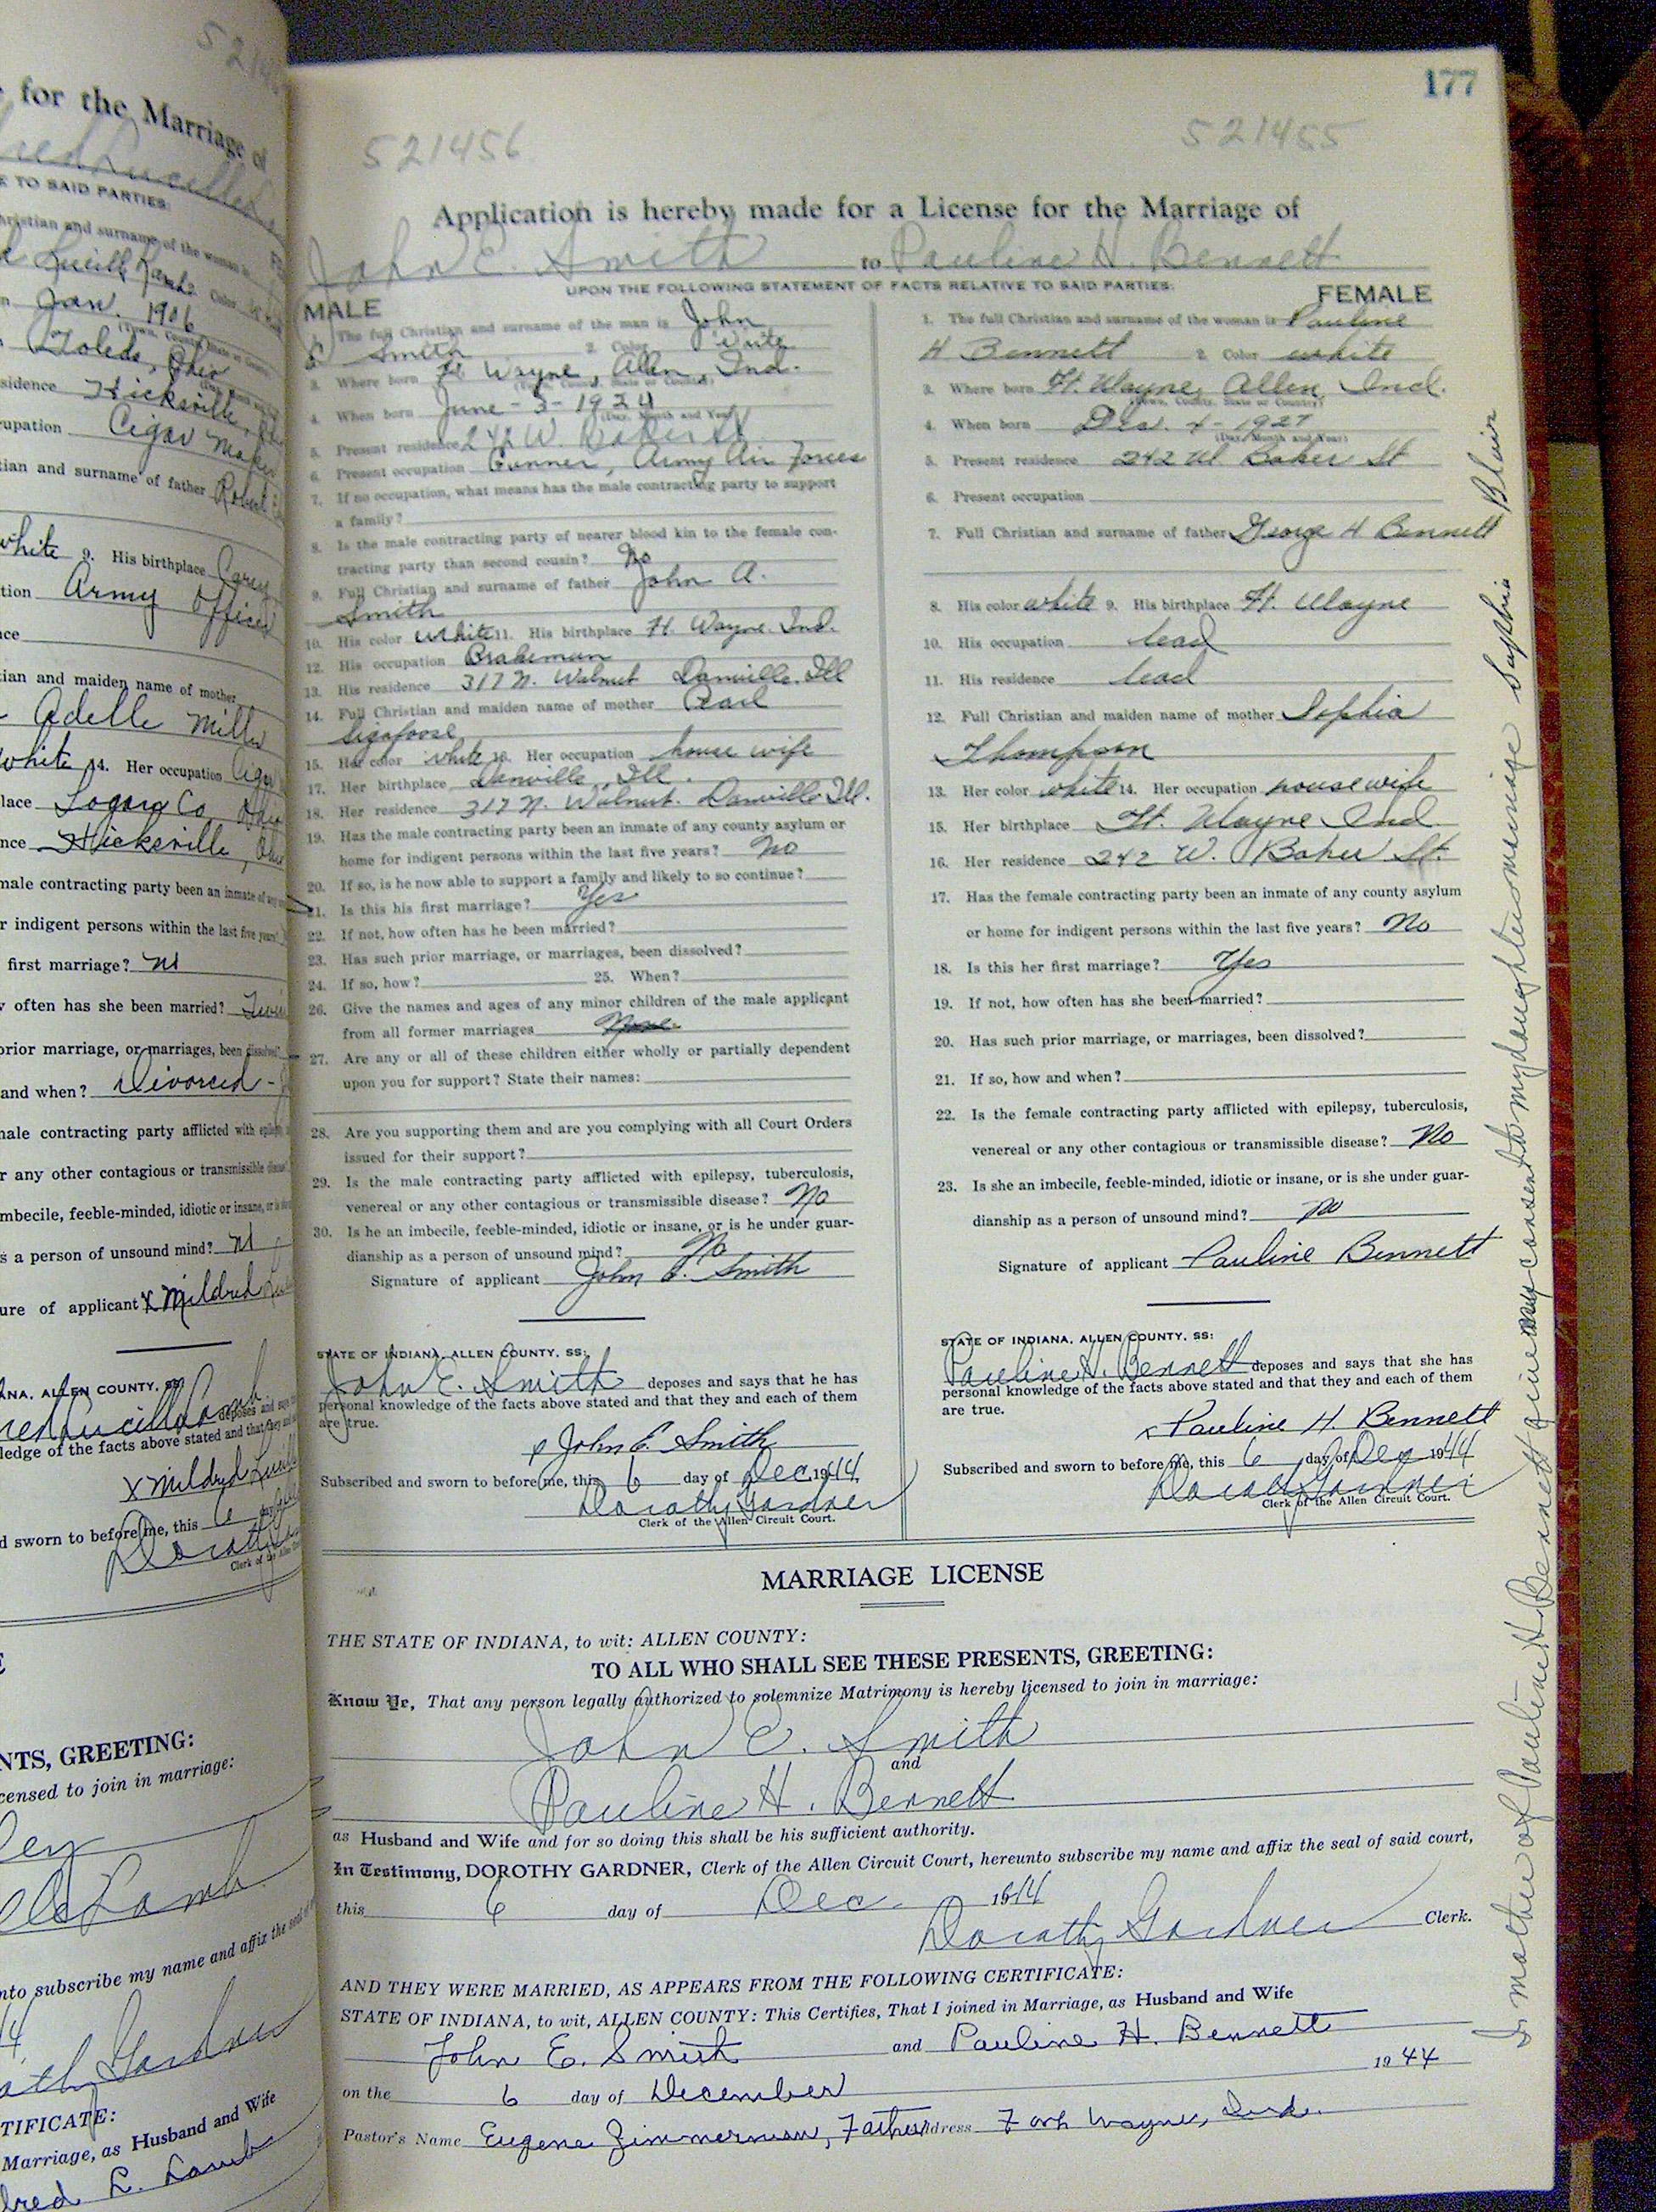 177
521456
521455
Application is hereby made for a License for the Marriage of
John E. Smith to Pauline H. Bennett
UPON THE FOLLOWING STATEMENT OF FACTS RELATIVE TO SAID PARTIES:
MALE
The full Christian and surname of the man is John
E Smith 2. Color White
3. Where born Ft Wayne, Allen, Ind.
(Town, County, State or Country)
4. When born June - 3 - 1924
(Day, Month and Year)
5. Present residence 242 W. Baker St
6. Present occupation Gunner, Army Air Forces
7. If no occupation, what means has the male contracting party to support
a family?
8. Is the male contracting party of nearer blood kin to the female con-
tracting party than second cousin? No
9. Full Christian and surname of father John A.
Smith
10. His color white 11. His birthplace Ft. Wayne. Ind.
12. His occupation Brakeman
13. His residence 317 N. Walnut Danville, Ill
14. Full Christian and maiden name of mother Pearl
Sigafoose
15. Her color white 16. Her occupation house wife
17. Her birthplace Danville, Ill.
18. Her residence 317 N. Walnut. Danville Ill.
19. Has the male contracting party been an inmate of any county asylum or
home for indigent persons within the last five years? No
20. If so, is he now able to support a family and likely to so continue?
21. Is this his first marriage? Yes
22. If not, how often has he been married?
23. Has such prior marriage, or marriages, been dissolved?
24. If so, how? 25. When?
26. Give the names and ages of any minor children of the male applicant
from all former marriages None
27. Are any or all of these children either wholly or partially dependent
upon you for support? State their names:
28. Are you supporting them and are you complying with all Court Orders
issued for their support?
29. Is the male contracting party afflicted with epilepsy, tuberculosis,
venereal or any other contagious or transmissible disease? No
30. Is he an imbecile, feeble-minded, idiotic or insane, or is he under guar-
dianship as a person of unsound mind? No
Signature of applicant John E. Smith
STATE OF INDIANA, ALLEN COUNTY, SS:
John E. Smith deposes and says that he has
personal knowledge of the facts above stated and that they and each of them
are true.
x John E. Smith
Subscribed and sworn to before me, this 6 day of Dec 1944
Dorothy Gardner
Clerk of the Allen Circuit Court.
FEMALE
1. The full Christian and surname of the woman is Pauline
H Bennett 2. Color white
3. Where born Ft. Wayne, Allen, Ind.
(Town, County, State or Country)
4. When born Dec. 4 - 1927
(Day, Month and Year)
5. Present residence 242 W. Baker St
6. Present occupation
7. Full Christian and surname of father George H Bennett
8. His color white 9. His birthplace Ft. Wayne
10. His occupation dead
11. His residence dead
12. Full Christian and maiden name of mother Sophia
Thompson
13. Her color white 14. Her occupation housewife
15. Her birthplace Ft. Wayne Ind
16. Her residence 242 W. Baker St.
17. Has the female contracting party been an inmate of any county asylum
or home for indigent persons within the last five years? No
18. Is this her first marriage? Yes
19. If not, how often has she been married?
20. Has such prior marriage, or marriages, been dissolved?
21. If so, how and when?
22. Is the female contracting party afflicted with epilepsy, tuberculosis,
venereal or any other contagious or transmissible disease? No
23. Is she an imbecile, feeble-minded, idiotic or insane, or is she under guar-
dianship as a person of unsound mind? no
Signature of applicant Pauline Bennett
STATE OF INDIANA, ALLEN COUNTY, SS:
Pauline H. Bennett deposes and says that she has
personal knowledge of the facts above stated and that they and each of them
are true.
x Pauline H. Bennett
Subscribed and sworn to before me, this 6 day of Dec 1944
Dorothy Gardner
Clerk of the Allen Circuit Court.
MARRIAGE LICENSE
THE STATE OF INDIANA, to wit: ALLEN COUNTY:
TO ALL WHO SHALL SEE THESE PRESENTS, GREETING:
Know Ye, That any person legally authorized to solemnize Matrimony is hereby licensed to join in marriage:
John E. Smith
and
Pauline H. Bennett
as Husband and Wife and for so doing this shall be his sufficient authority.
In Testimony, DOROTHY GARDNER, Clerk of the Allen Circuit Court, hereunto subscribe my name and affix the seal of said court,
this 6 day of Dec. 1944
Dorothy Gardner Clerk.
AND THEY WERE MARRIED, AS APPEARS FROM THE FOLLOWING CERTIFICATE:
STATE OF INDIANA, to wit, ALLEN COUNTY: This Certifies, That I joined in Marriage, as Husband and Wife
John E. Smith and Pauline H. Bennett
on the 6 day of December 1944
Pastor's Name Eugene Zimmerman, Father Address Fort Wayne, Ind.
I mother of Pauline H Bennett give my consent to my daughters marriage Sophia Blair
for the Marriage of
TO SAID PARTIES:
Christian and surname of the woman is
Jan. 1906
Toledo, Ohio
Hicksville,
Cigar Maker
and surname of father Robert
white 9. His birthplace Carey
Army Officer
and maiden name of mother
Adelle Miller
white 14. Her occupation
Logan Co
Hicksville,
male contracting party been an inmate of any
indigent persons within the last five years?
first marriage?
often has she been married?
prior marriage, or marriages, been dissolved?
and when? Divorced -
male contracting party afflicted with
any other contagious or transmissible
imbecile, feeble-minded, idiotic or insane,
as a person of unsound mind?
of applicant x Mildred
ALLEN COUNTY, SS
deposes and says
of the facts above stated and that they and
x Mildred
sworn to before me, this 6
GREETING:
to join in marriage:
Lamb
subscribe my name and affix the seal of
Gardner
Marriage, as Husband and Wife
L. Lamb